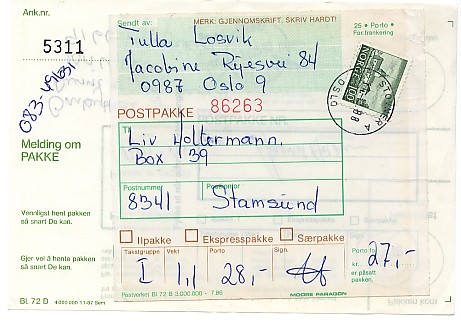 Ank.nr.
5311
083-49631
Melding om
PAKKE
Vennligst hent pakken
så snart De kan.
Gjer vel å hente pakken
så snart De kan.
Bl. 72 D 4 000 000 11-87 Sem
Sendt av:
MERK: GJENNOMSKRIFT, SKRIV HARDT!
25 • Porto •
For.frankering
Tulla Losvik
Jacobine Ryesvei 84
0987 Oslo 9
NOREG
STOVNER
OSLO
POSTPAKKE
86263
Til
Liv Holtermann.
Box 39
Postnummer
Postkontor
8341 Stamsund
Ilpakke
Ekspresspakke
Særpakke
Takstgruppe
Vekt
Porto
Sign.
I 1,1 28,-
Porto for
kr. 27,-
er påsatt
pakken.
Postverket Bl. 72 B 3.000.000 - 7.86
MOORE PARAGON